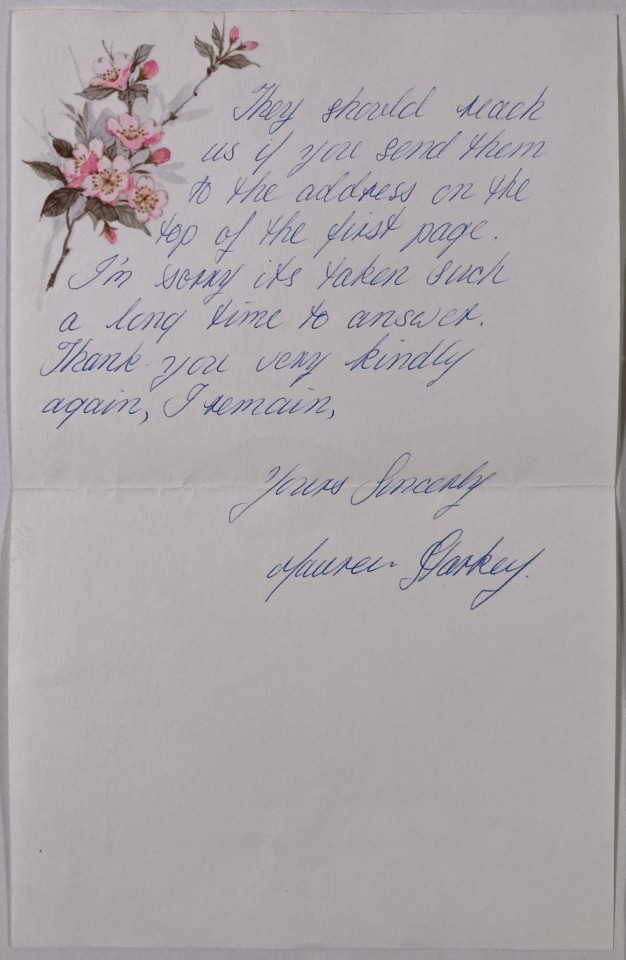 They should reach
us if you send them
to the address on the
top of the first page.
I'm sorry its taken such
a long time to answer.
Thank you very kindly
again, I remain,
Yours Sincerly
Maureen Starkey.